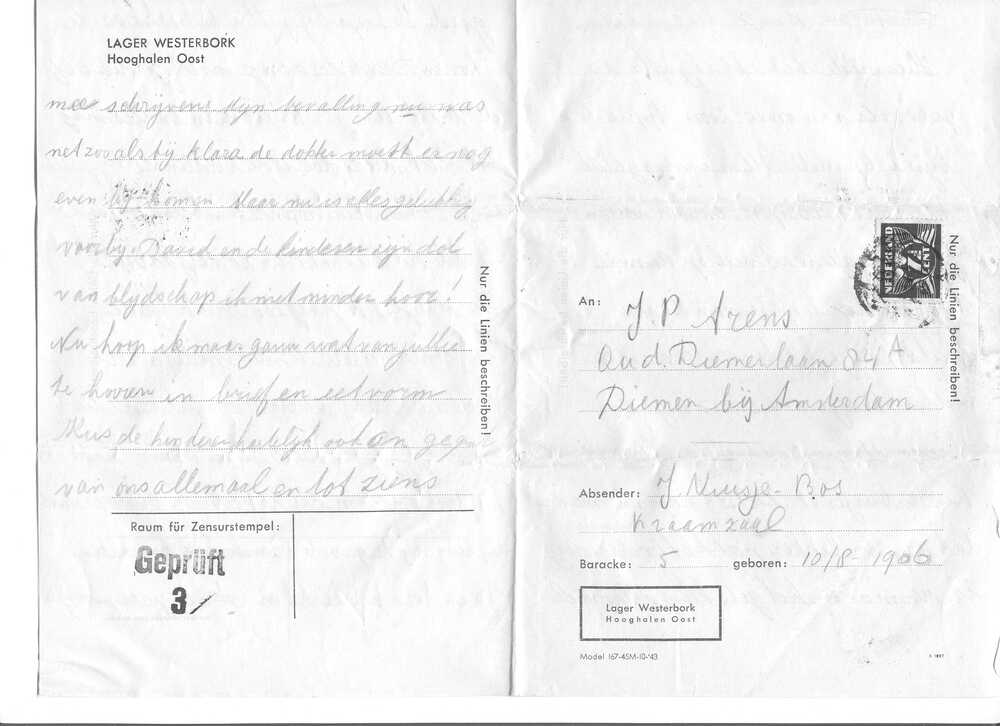 LAGER WESTERBORK
Hooghalen Oost
mee schrijvens Mijn bevalling nu was
net zoo als bij Klara de dokter moest er nog
even bij komen Maar nu is alles gelukkig
voorbij. David en de kinderen zijn dol
van blijdschap ik niet minder hoor!
Nu hoop ik maar gauw wat van jullie
te hooren in brief en eetvorm
Kus de kinderen hartelijk ook
van ons allemaal en tot ziens
Nur die Linien beschreiben!
Raum für Zensurstempel:
Geprüft
3
NEDERLAND
7½
CENT
Nur die Linien beschreiben!
An: J. P Arens
Oud. Diemerlaan 84 A
Diemen bij Amsterdam
Absender: J. Nuusje-Bos
Kraamzaal
Baracke: 5 geboren: 10/8-1906
Lager Westerbork
Hooghalen Oost
Model 167-45M-10-'43